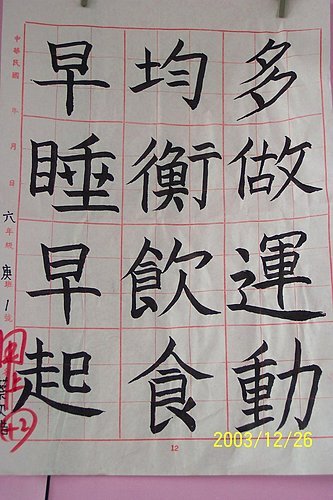 多做運動
均衡飲食
早睡早起
中華民國 年 月 日
六年級 庚班 1號
甲上
+2
12
2003/12/26